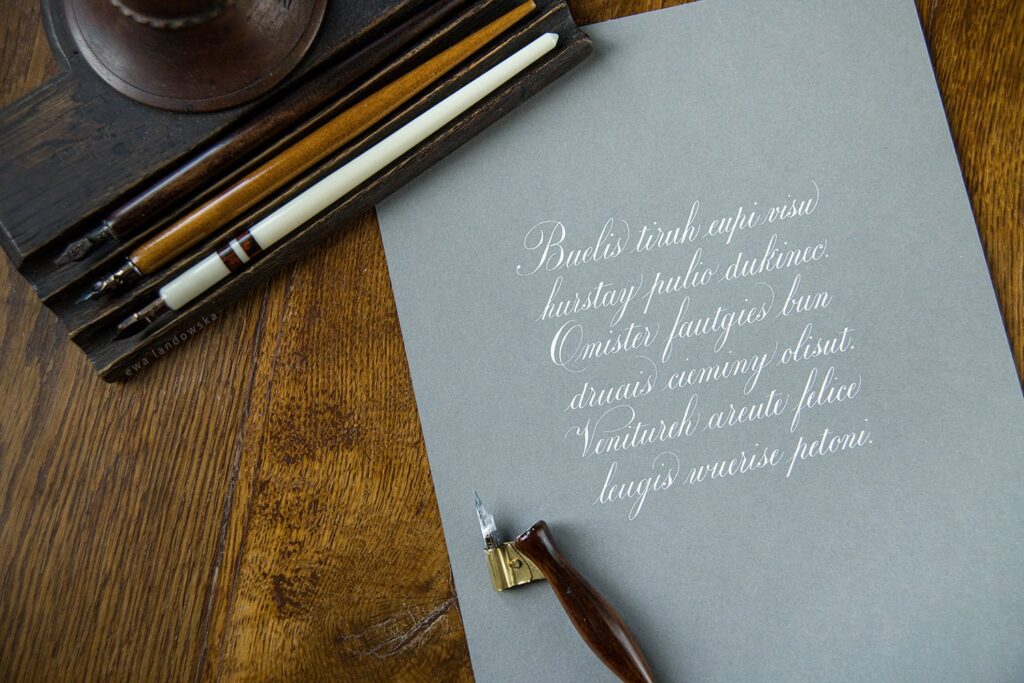 Buelis tiruh eupi visu
hurstay pulio dukinec.
Omister fautgies bun
druais cieminy olisut.
Venitureh areute felice
leugis wuerise petoni.
ewa landowska